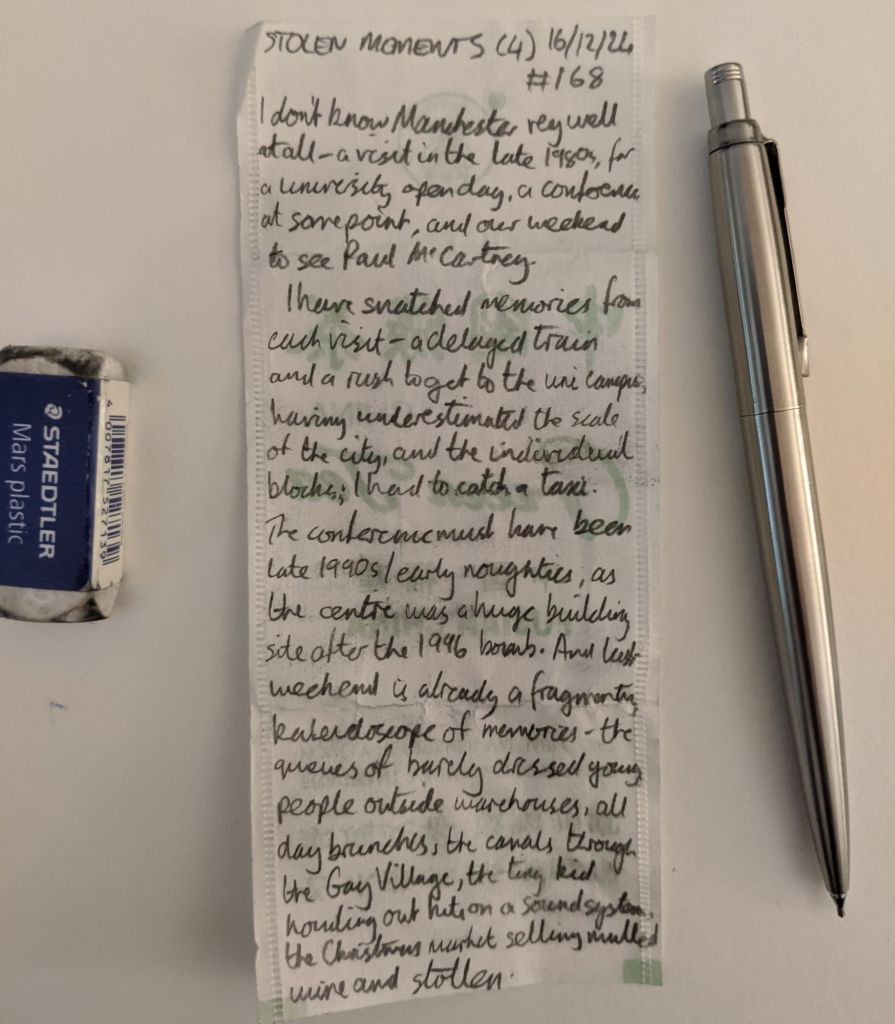 STOLEN MOMENTS (4) 16/12/24
#168
I don't know Manchester very well
at all – a visit in the late 1980s, for
a university open day, a conference
at some point, and our weekend
to see Paul McCartney.
I have snatched memories from
each visit – a delayed train
and a rush to get to the uni campus,
having underestimated the scale
of the city, and the individual
blocks; I had to catch a taxi.
The conference must have been
late 1990s/early noughties, as
the centre was a huge building
site after the 1996 bomb. And last
weekend is already a fragmenting
kaleidoscope of memories – the
queues of barely dressed young
people outside warehouses, all
day brunches, the canals through
the Gay Village, the tiny kid
howling out hits on a sound system,
the Christmas market selling mulled
wine and stollen.
STAEDTLER
Mars plastic
4 007817 527139